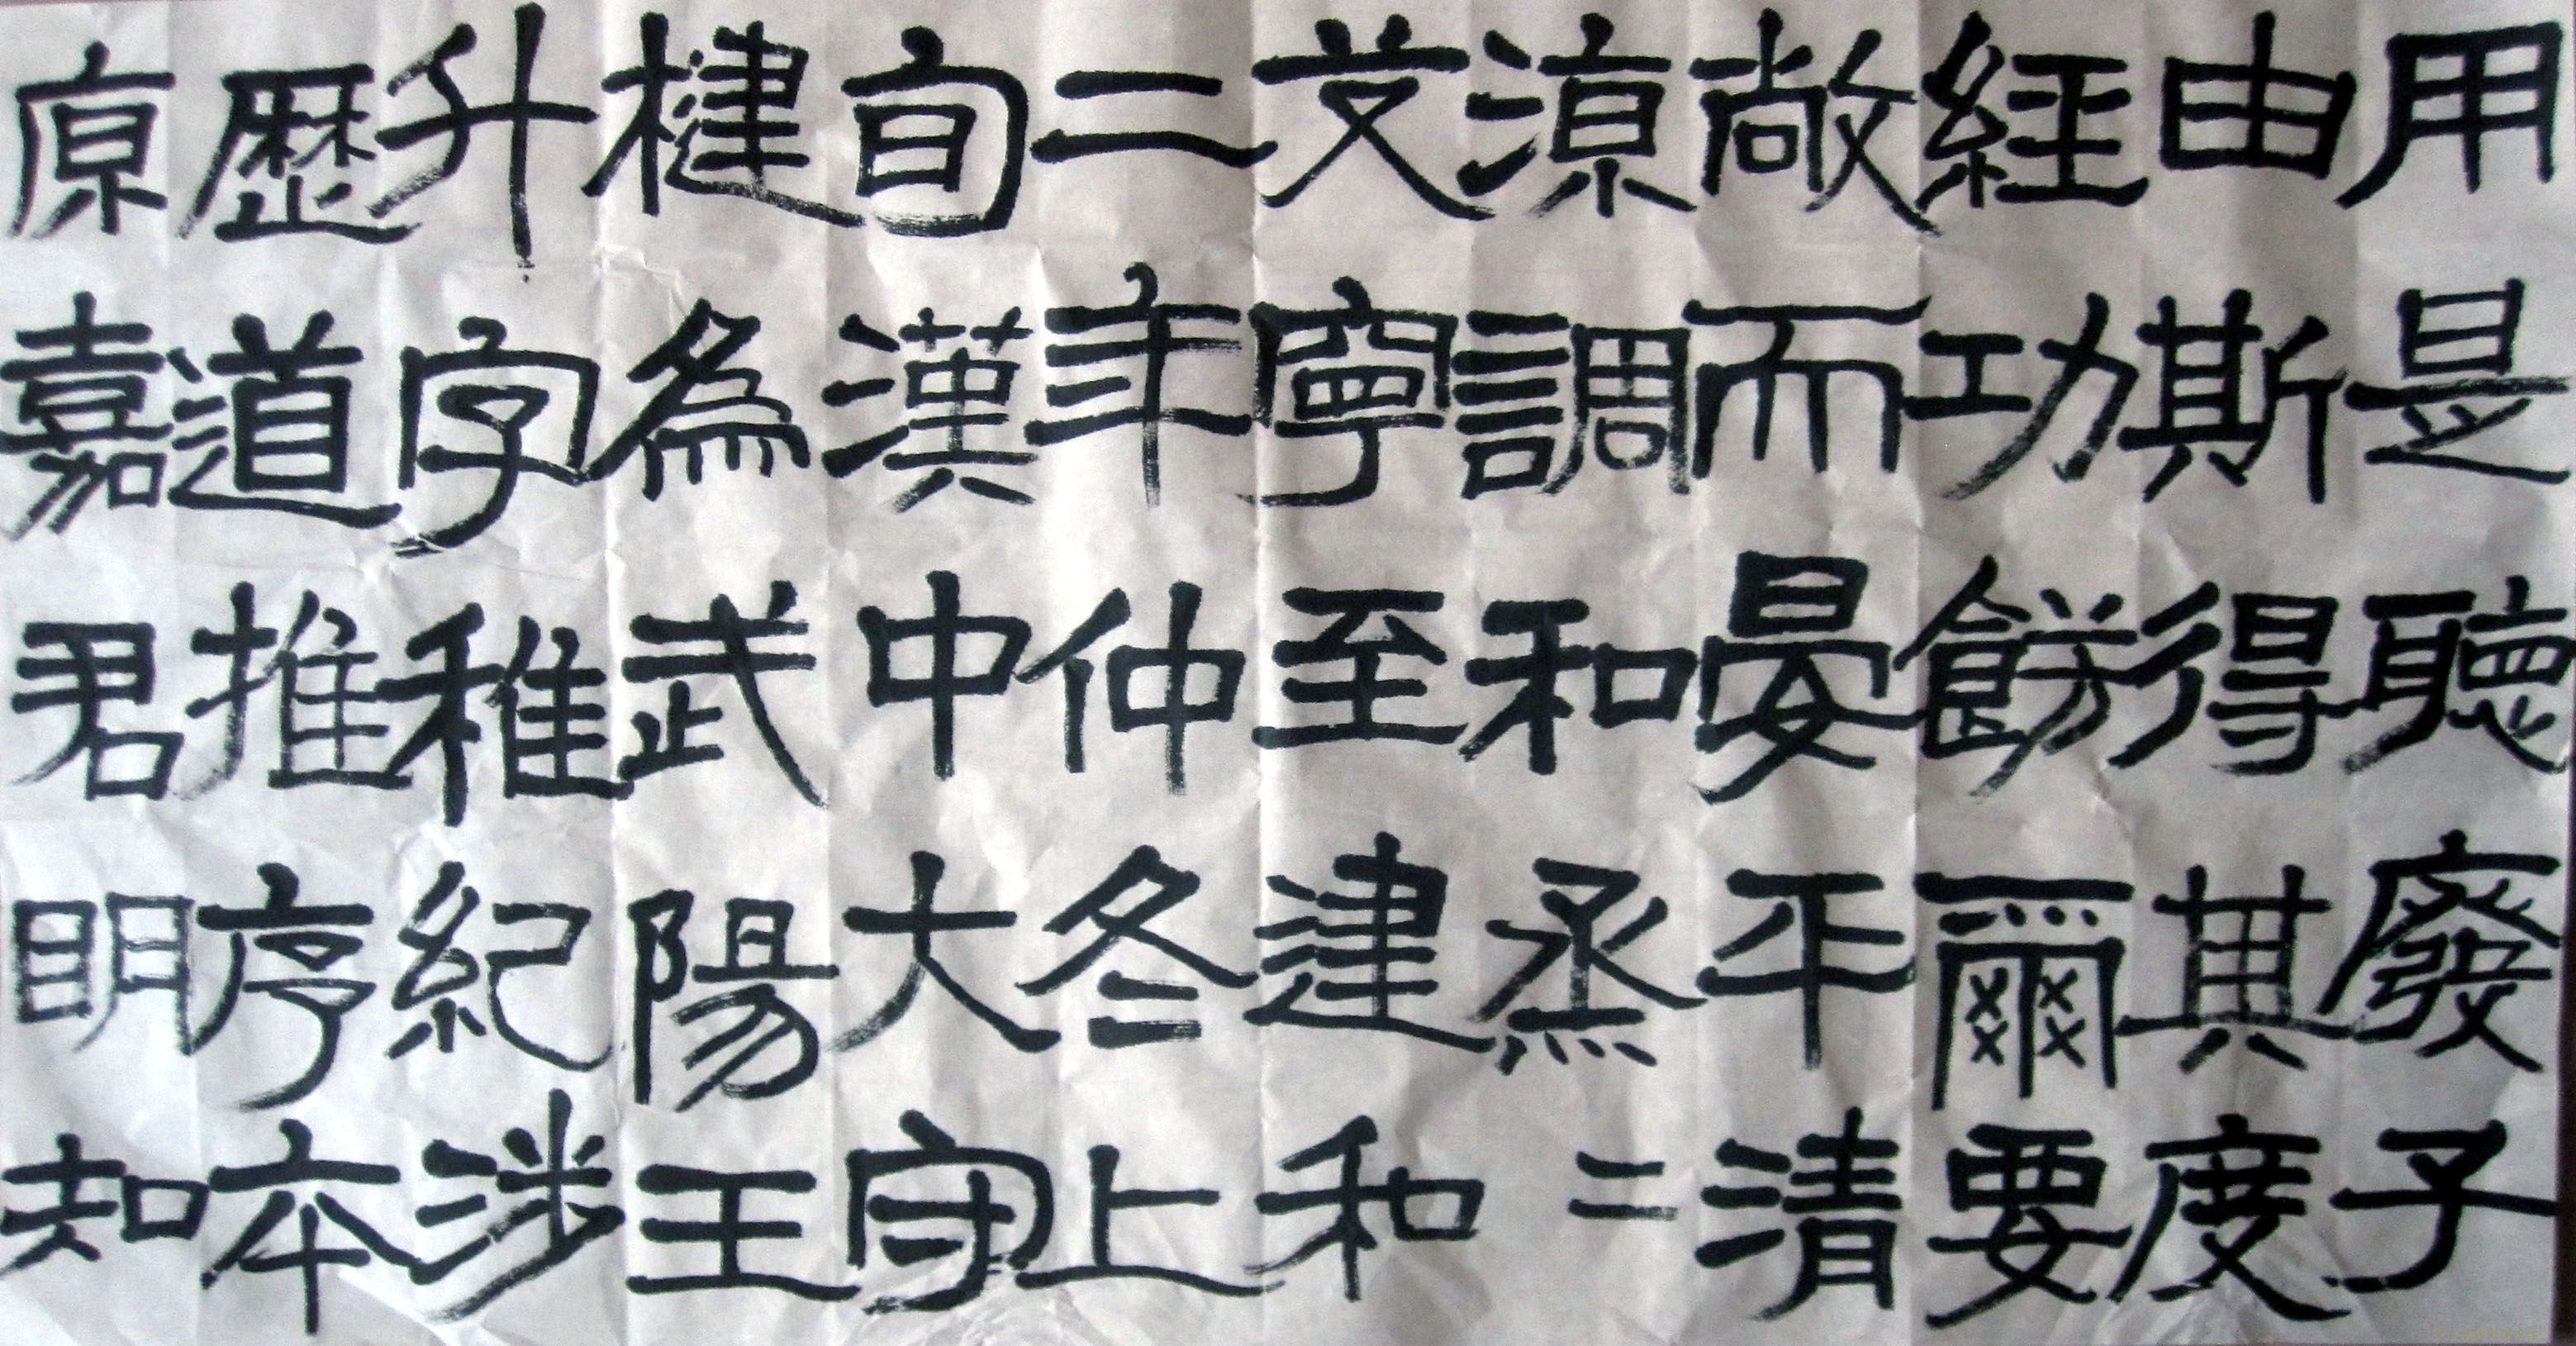 用是聽廢子
由斯得其度
經功飭爾要
敞而晏平清
涼調和烝二
艾寧至建和
二年仲冬上
旬漢中大守
楗為武陽王
升字稚紀涉
歷道推序本
原嘉君明知